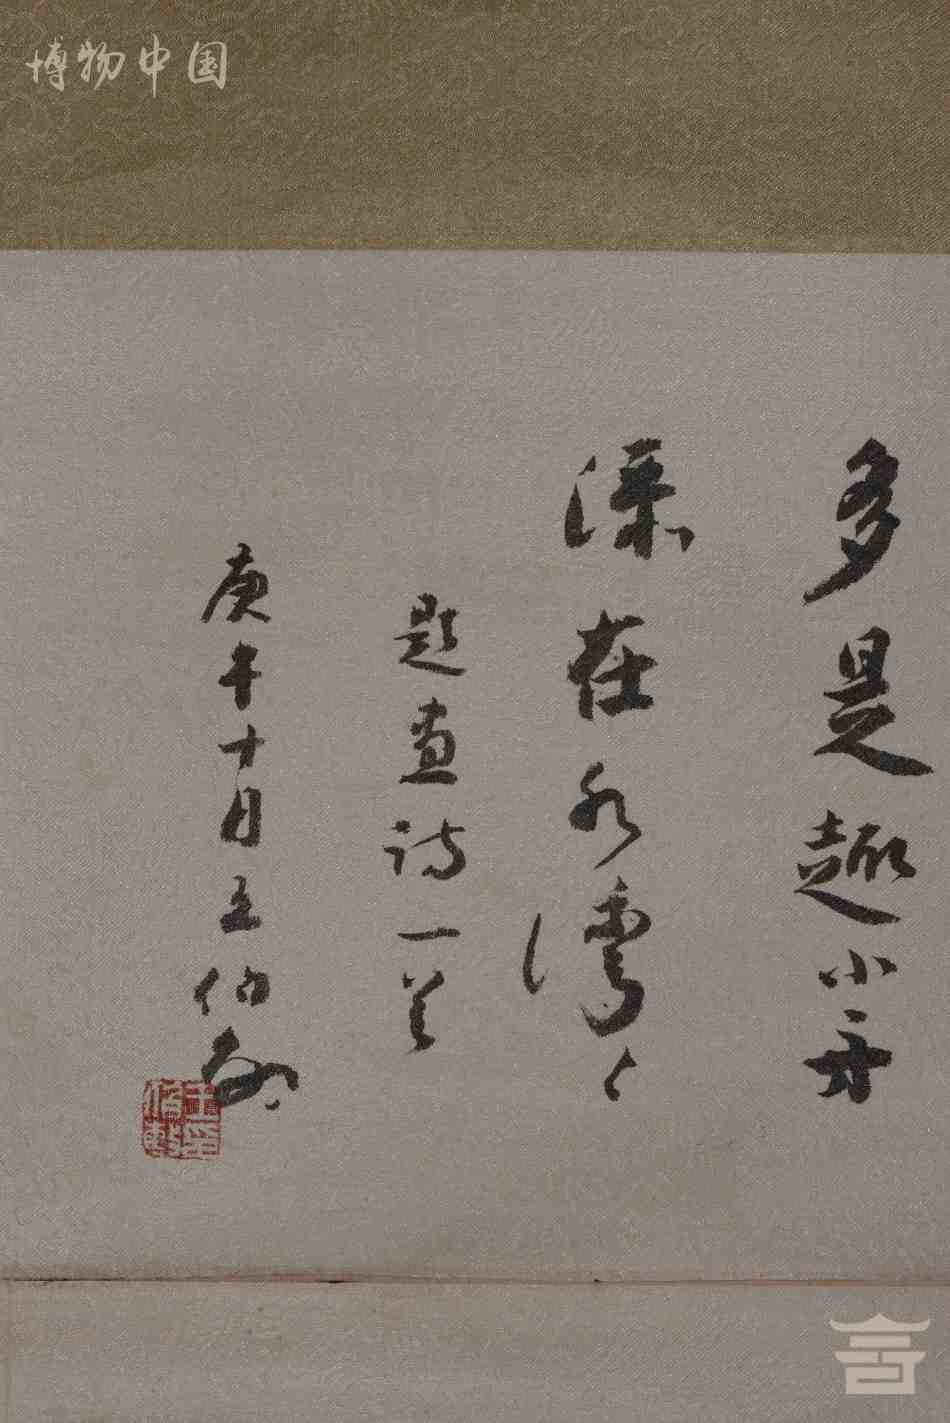 博物中国
多是趣小舟
深在水湾々
题画诗一首
庚午十月王伯敏
王伯敏印